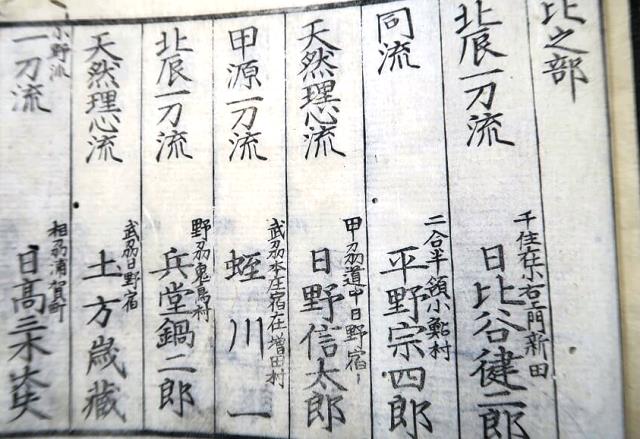 比之部
北辰一刀流
千住在小右衛門新田
日比谷健二郎
同流
二合半領小鮎村
平野宗四郎
天然理心流
甲刕道中日野宿
日野信太郎
甲源一刀流
武刕本庄宿在増田村
蛭川一
北辰一刀流
野刕鬼島村
兵堂鍋二郎
天然理心流
武刕日野宿
土方歳蔵
小野派
一刀流
相刕浦賀町
日高三木太夫